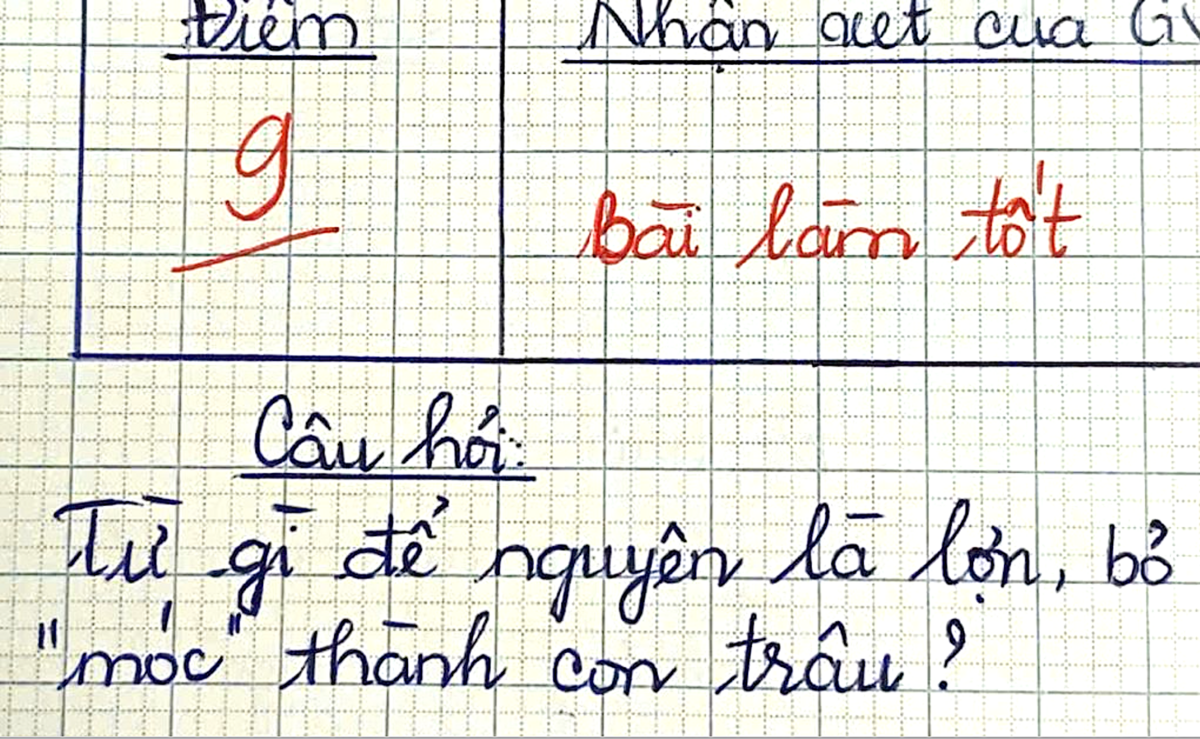 Điểm
Nhận xét của GV
9
Bài làm tốt
Câu hỏi:
Từ gì để nguyên là lợn, bỏ
"móc" thành con trâu?